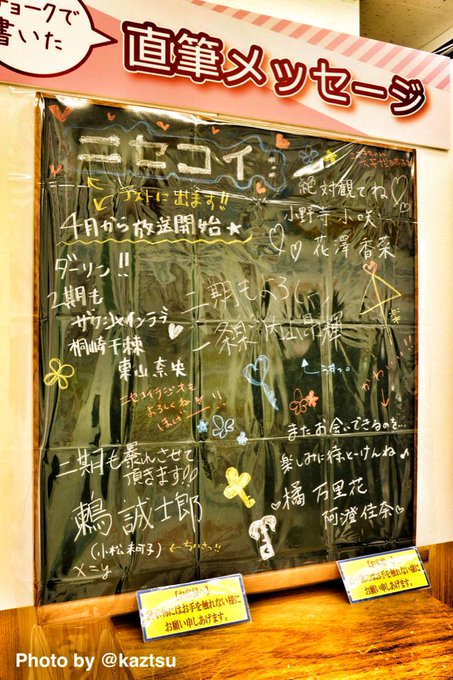 チョークで
書いた
直筆メッセージ
ニセコイ:
テストに出ます!!
4月から放送開始★
絶対観てね
小野寺 小咲
花澤 香菜
ダーリン!!
2期も
ザクシャインラブ
桐崎千棘
東山奈央
ニセコイラジオも
よろしくね
ほげー
二期もよろしく
一条楽 内山昂輝
二期も暴れさせて
頂きます!!
鶫 誠士郎
(小松未可子) ←ちいさっ!!
またお会いできるのを…
楽しみに待っとーけんね♪
橘 万里花
阿澄佳奈
お手を触れない様に
お願い申しあげます。
お手を触れない様に
お願い申しあげます。
Photo by @kaztsu